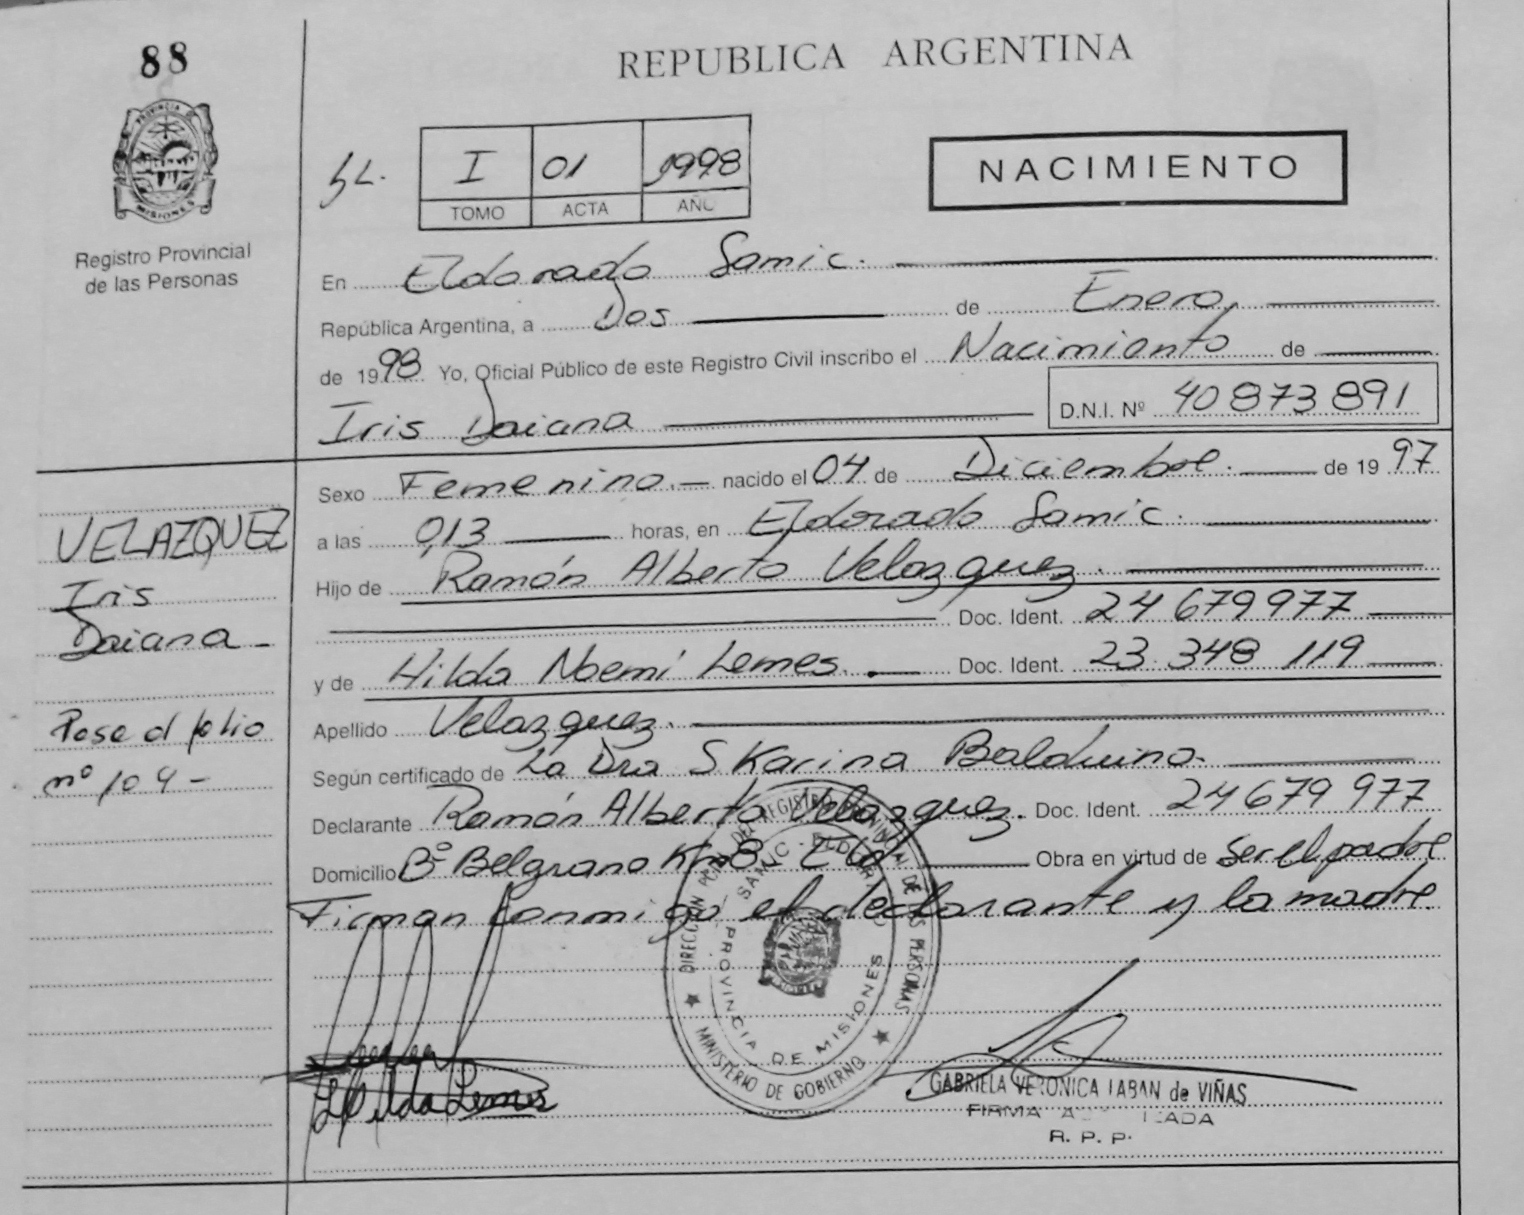 88
PROVINCIA DE
MISIONES
Registro Provincial
de las Personas
VELAZQUEZ
Iris
Daiana
Pase al folio
nº 104
REPUBLICA ARGENTINA
I 01 1998
TOMO ACTA AÑO
NACIMIENTO
En Eldorado Samic.
República Argentina, a Dos de Enero,
de 1998 Yo, Oficial Público de este Registro Civil inscribo el Nacimiento de
Iris Daiana D.N.I. Nº 40 873 891
Sexo Femenino. nacido el 04 de Diciembre. de 19 97
a las 0,13 horas, en Eldorado Samic.
Hijo de Ramón Alberto Velazquez.
Doc. Ident. 24 679 977
y de Hilda Noemí Lemes. Doc. Ident. 23.348 119
Apellido Velazquez.
Según certificado de La Dra S Karina Balduino.
Declarante Ramón Alberto Velazquez. Doc. Ident. 24 679 977
Domicilio Bº Belgrano Km 8 - Eldo Obra en virtud de ser el padre
Firman conmigo el declarante y la madre.
DIRECCIÓN PCIAL. DEL REGISTRO PROVINCIAL DE LAS PERSONAS
SAMIC - ELDORADO
PROVINCIA DE MISIONES
MINISTERIO DE GOBIERNO
Hilda Lemes
GABRIELA VERONICA TABAN de VIÑAS
FIRMA
R. P. P.